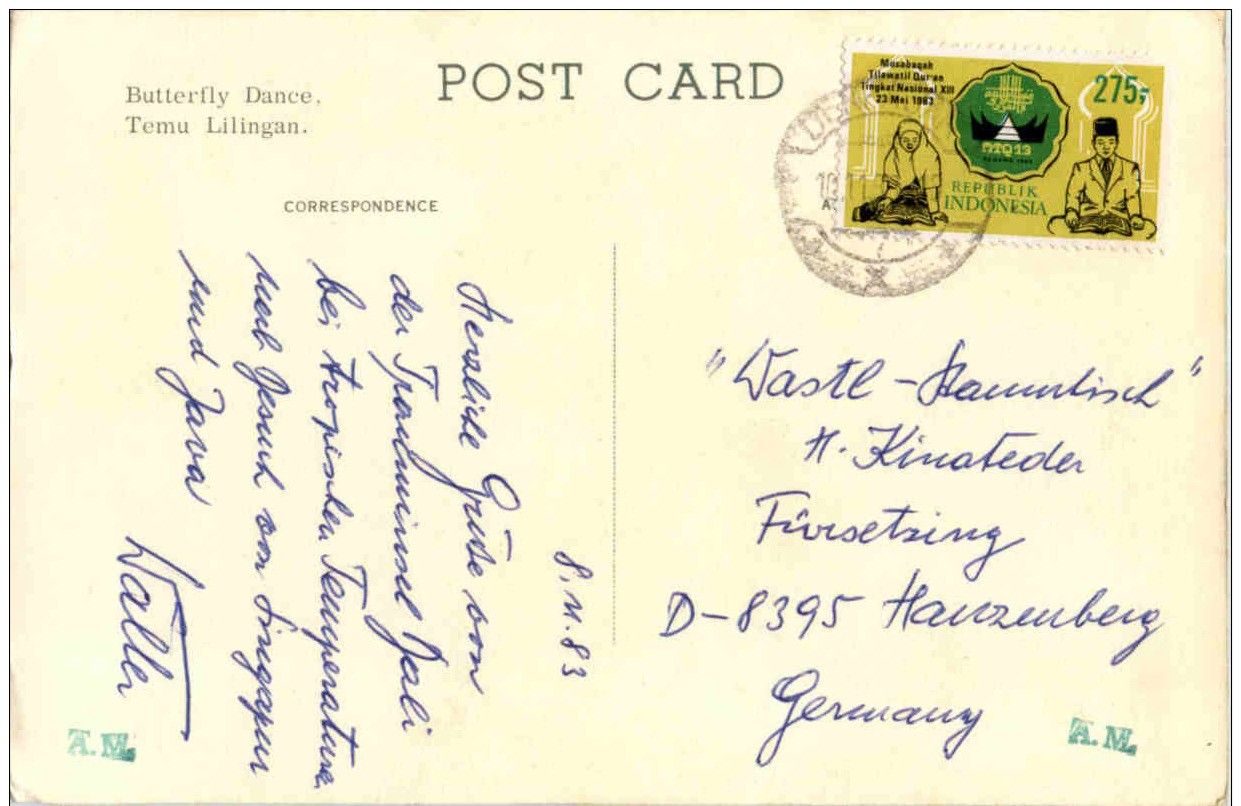 Butterfly Dance,
Temu Lilingan.
POST CARD
CORRESPONDENCE
Musabaqah
Tilawatil Qur'an
Tingkat Nasional XIII
23 Mei 1983
275,-
MTQ 13
PADANG 1983
REPUBLIK
INDONESIA
8.11.83
Herzliche Grüße von
der Trauminsel Bali
bei tropischen Temperaturen
nach Besuch von Singapur
und Java
Walter
"Wastl-Stammtisch"
H. Kinateder
Fürsetzing
D-8395 Hauzenberg
Germany
A.M.
A.M.